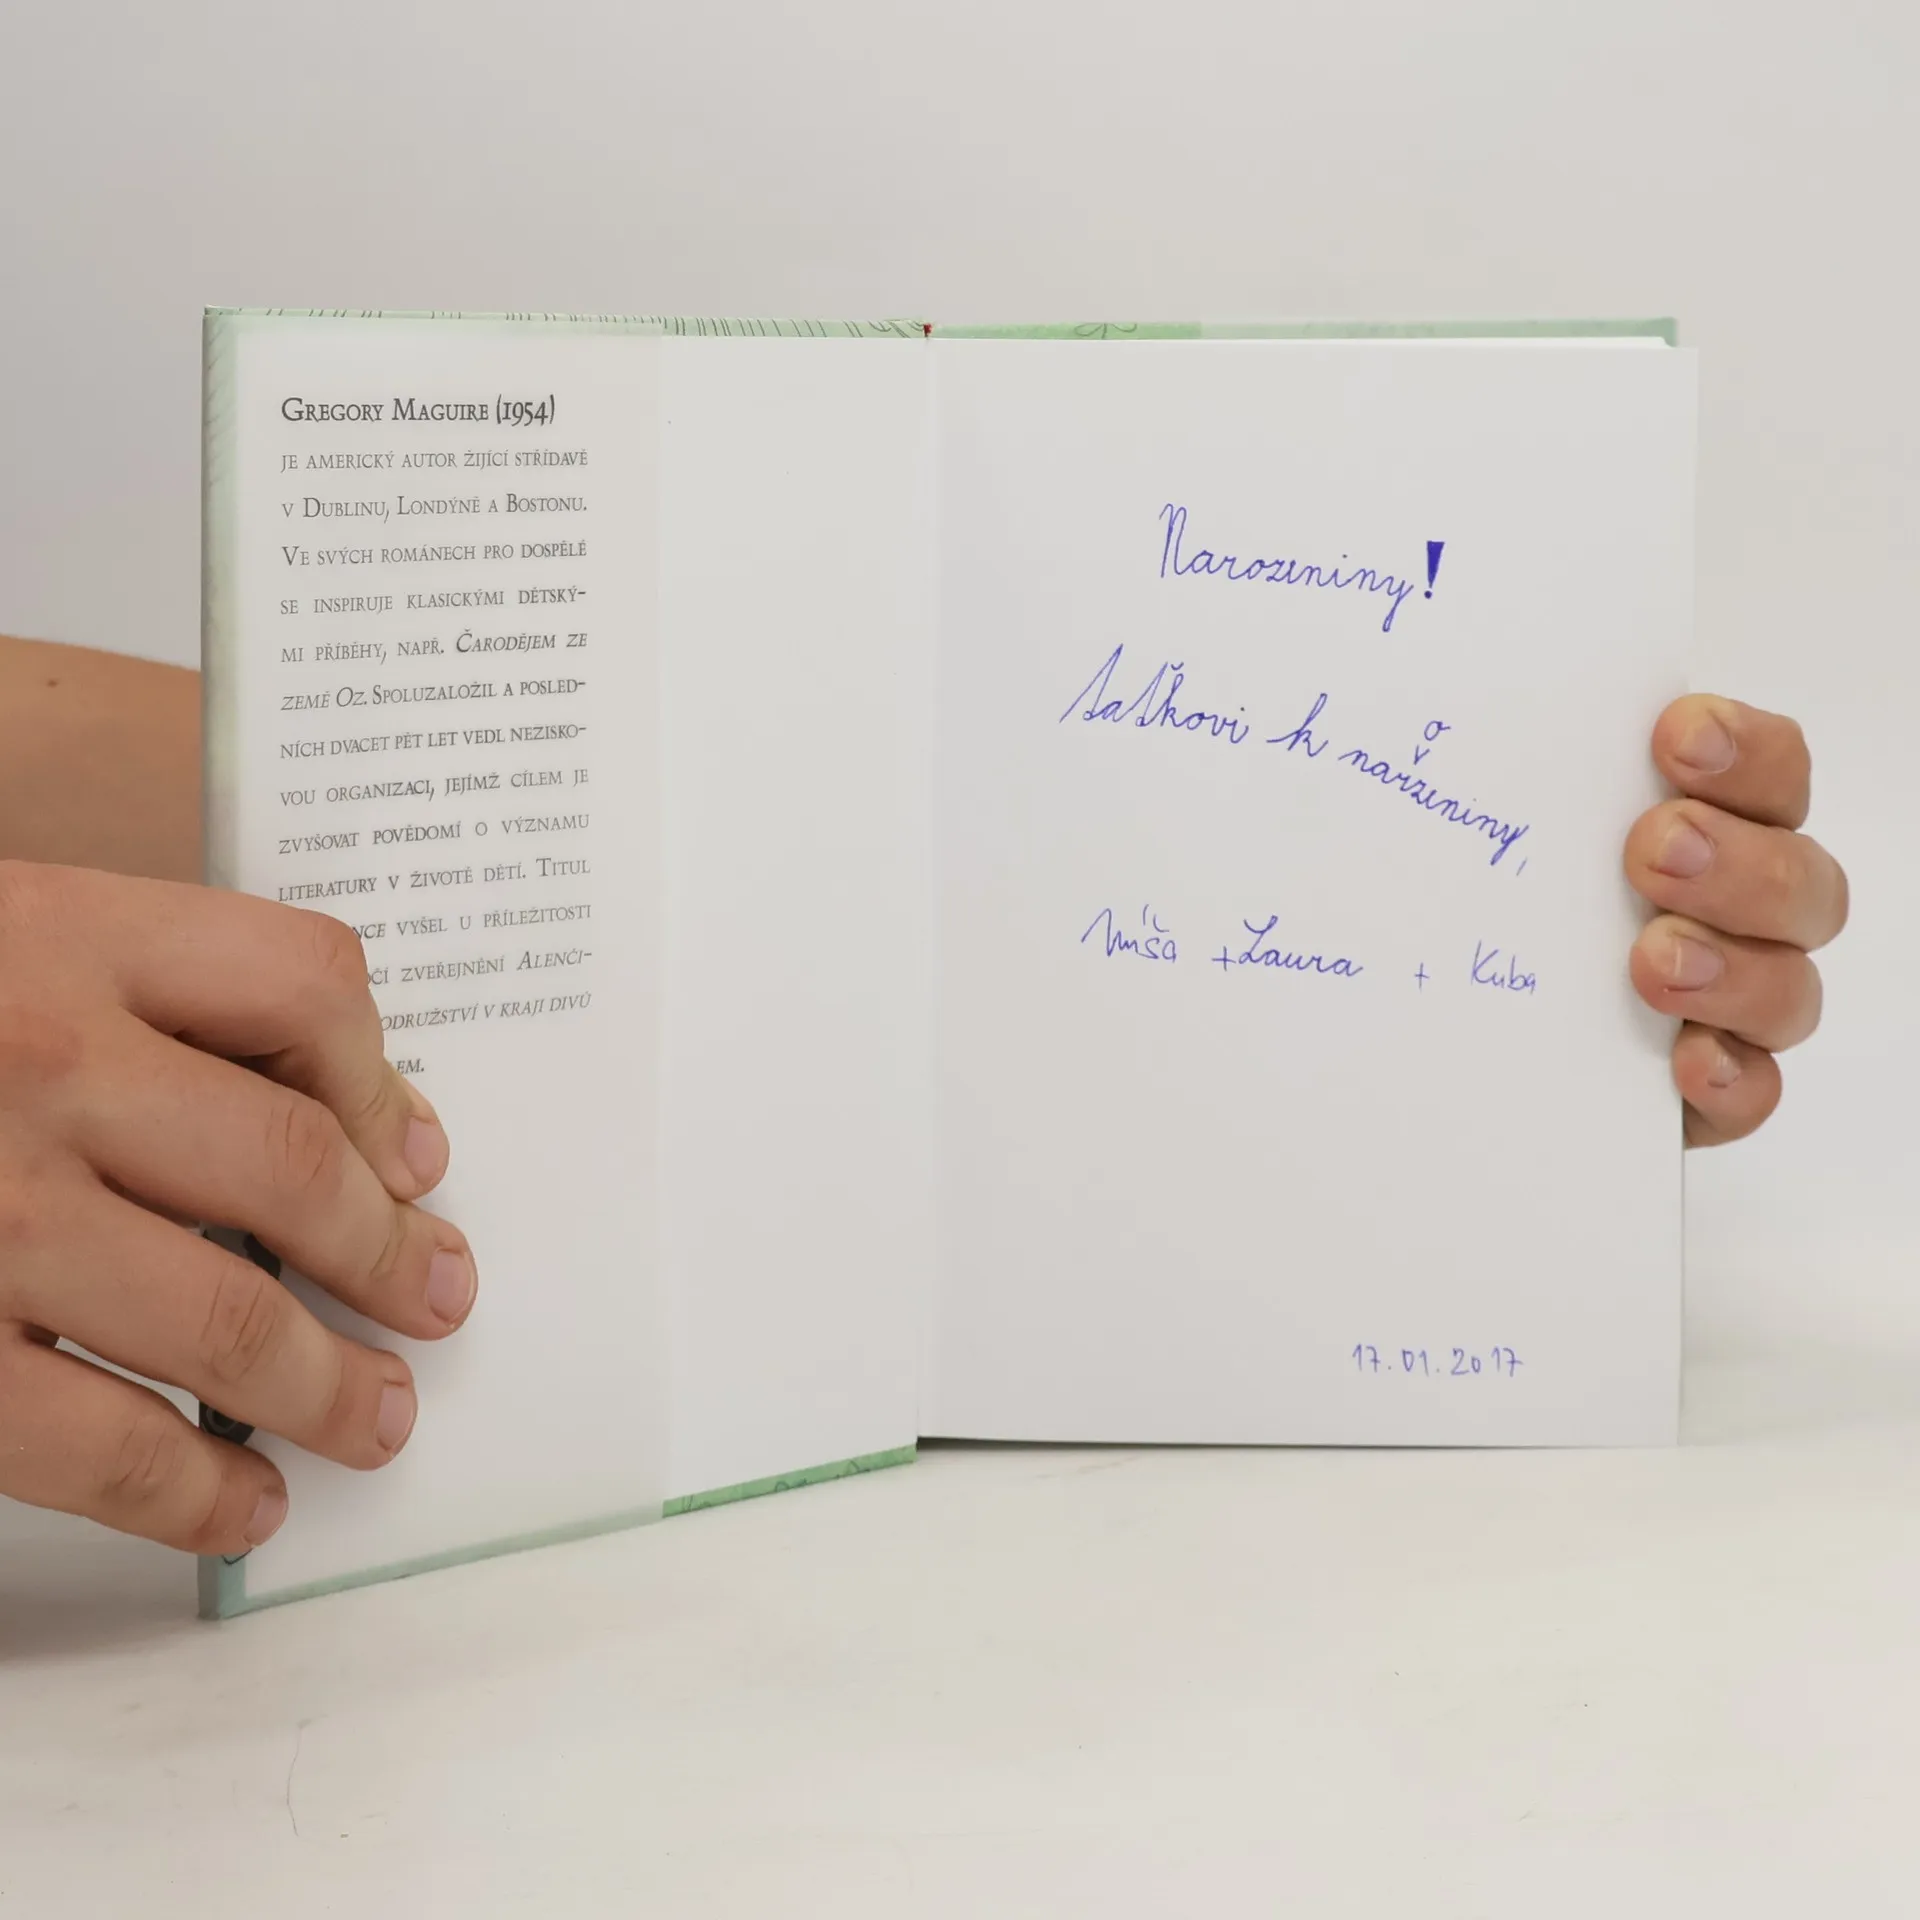 Gregory Maguire (1954)
je americký autor žijící střídavě
v Dublinu, Londýně a Bostonu.
Ve svých románech pro dospělé
se inspiruje klasickými dětský-
mi příběhy, např. Čarodějem ze
země Oz. Spoluzaložil a posled-
ních dvacet pět let vedl nezisko-
vou organizaci, jejímž cílem je
zvyšovat povědomí o významu
literatury v životě dětí. Titul
vyšel u příležitosti
zveřejnění Alenči-
v kraji divů
Narozeniny!
taťkovi k narozeniny,
Míša + Laura + Kuba
17.01.2017